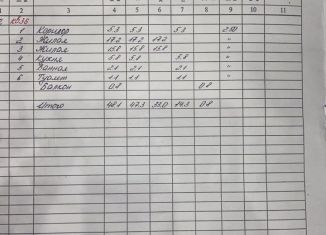 2 3 4 5 6 7 8 9 10 11
1 Коридор 5.3 5.3 5.3 2.50
2 Жилая 17.2 17.2 17.2 "
3 Жилая 15.8 15.8 15.8 "
4 Кухня 5.8 5.8 5.8 "
5 Ванная 2.1 2.1 2.1 "
6 Туалет 1.1 1.1 1.1 "
Балкон 0.8 0.8
Итого 48.1 47.3 33.0 14.3 0.8